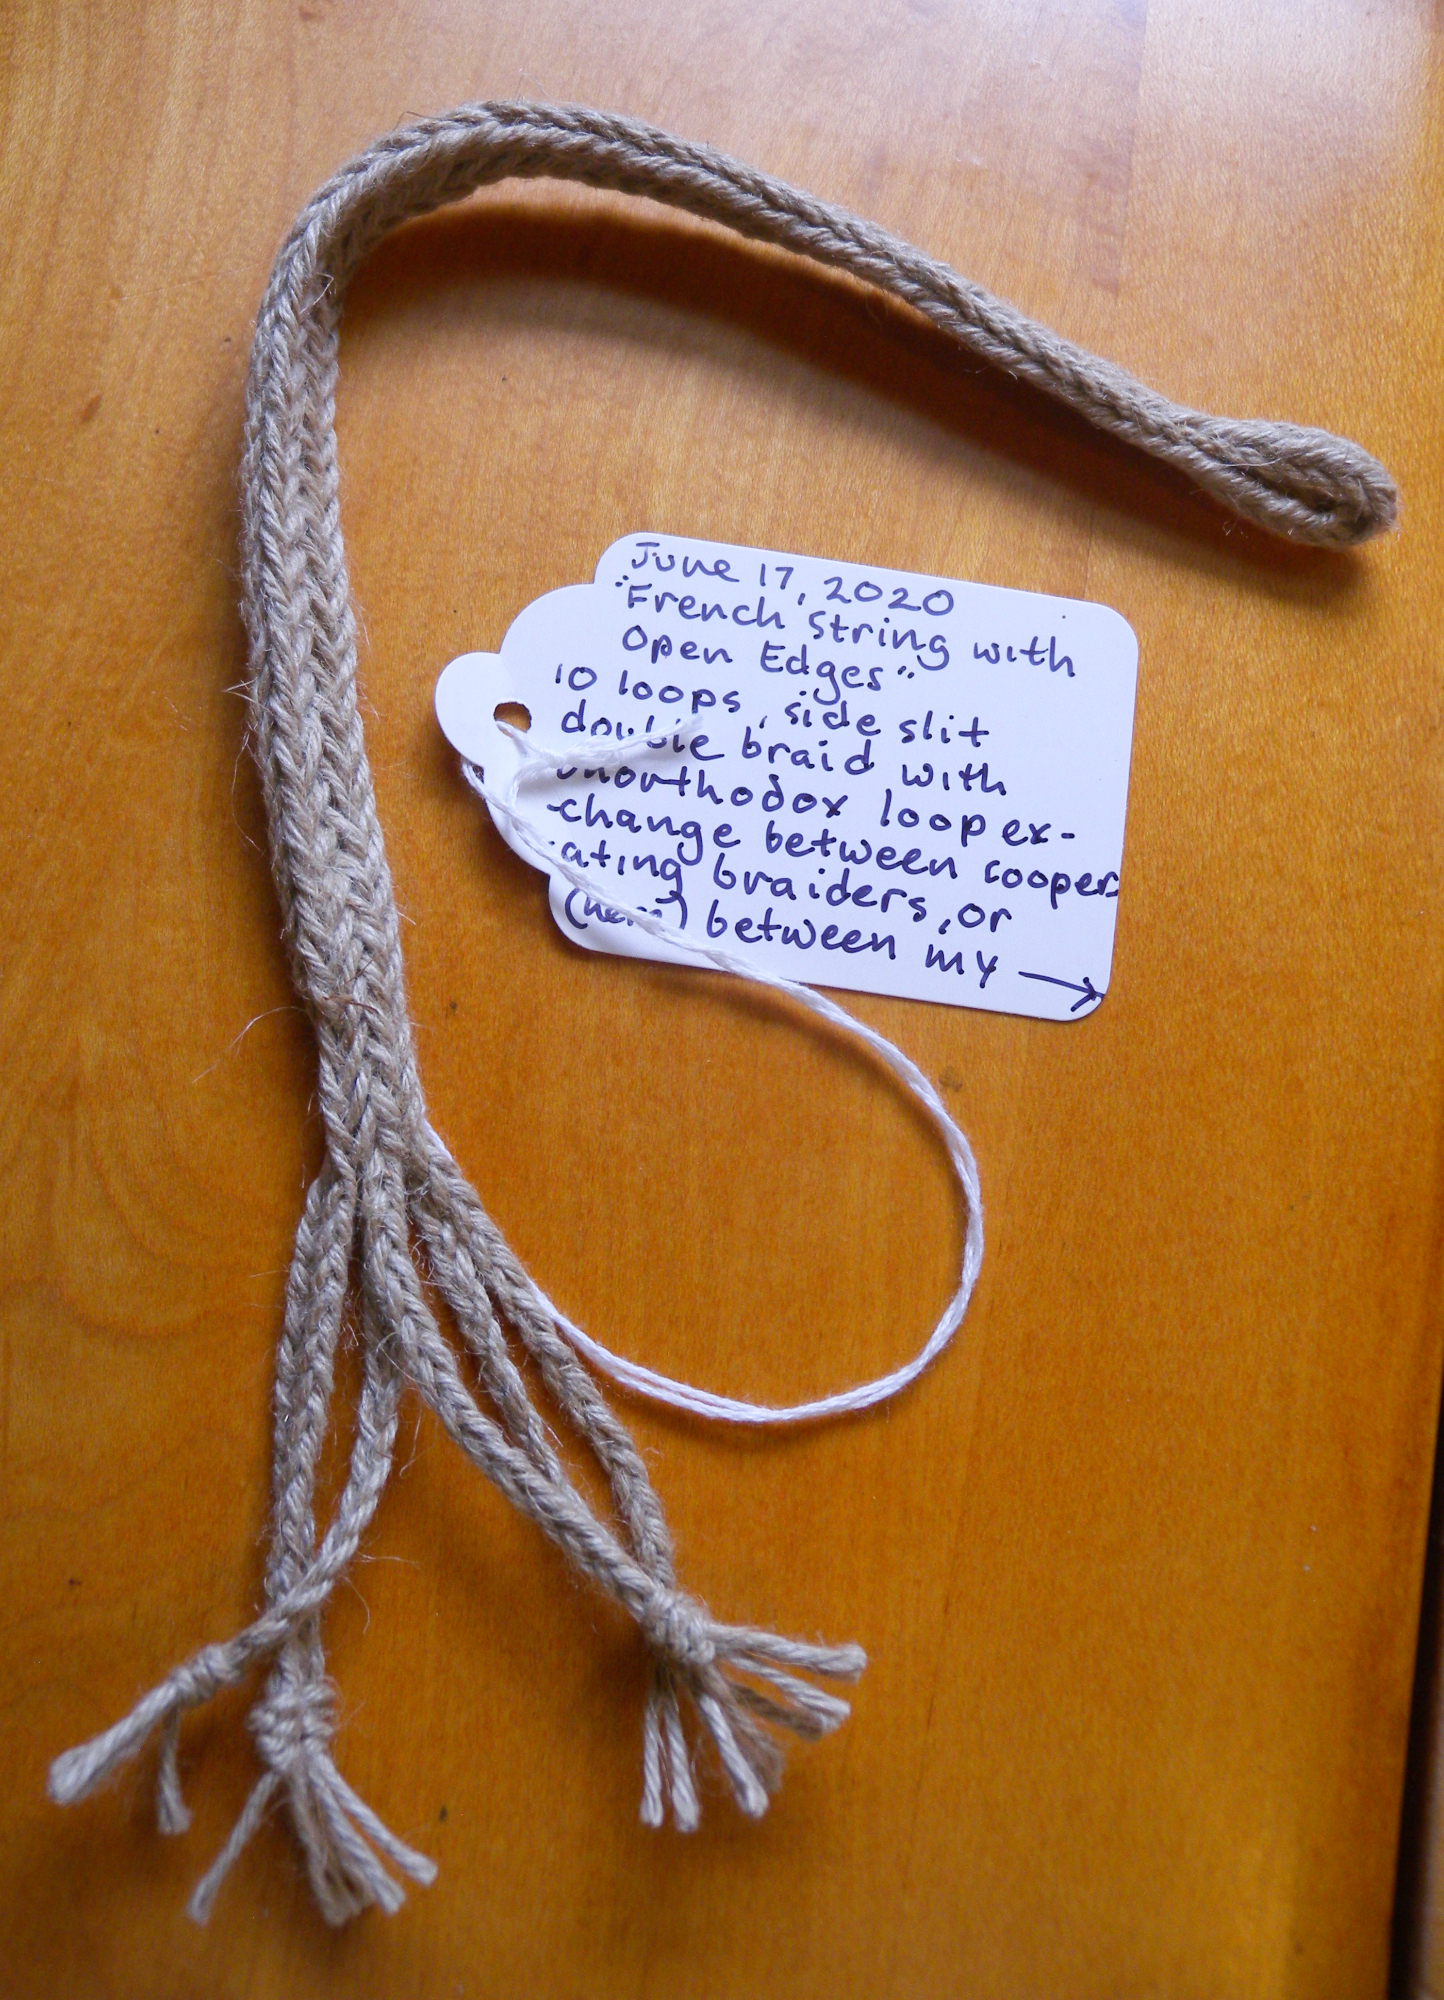 June 17, 2020
"French string with
Open Edges"
10 loops, side slit
double braid with
unorthodox loop ex-
change between cooper-
ating braiders, or
(here) between my →